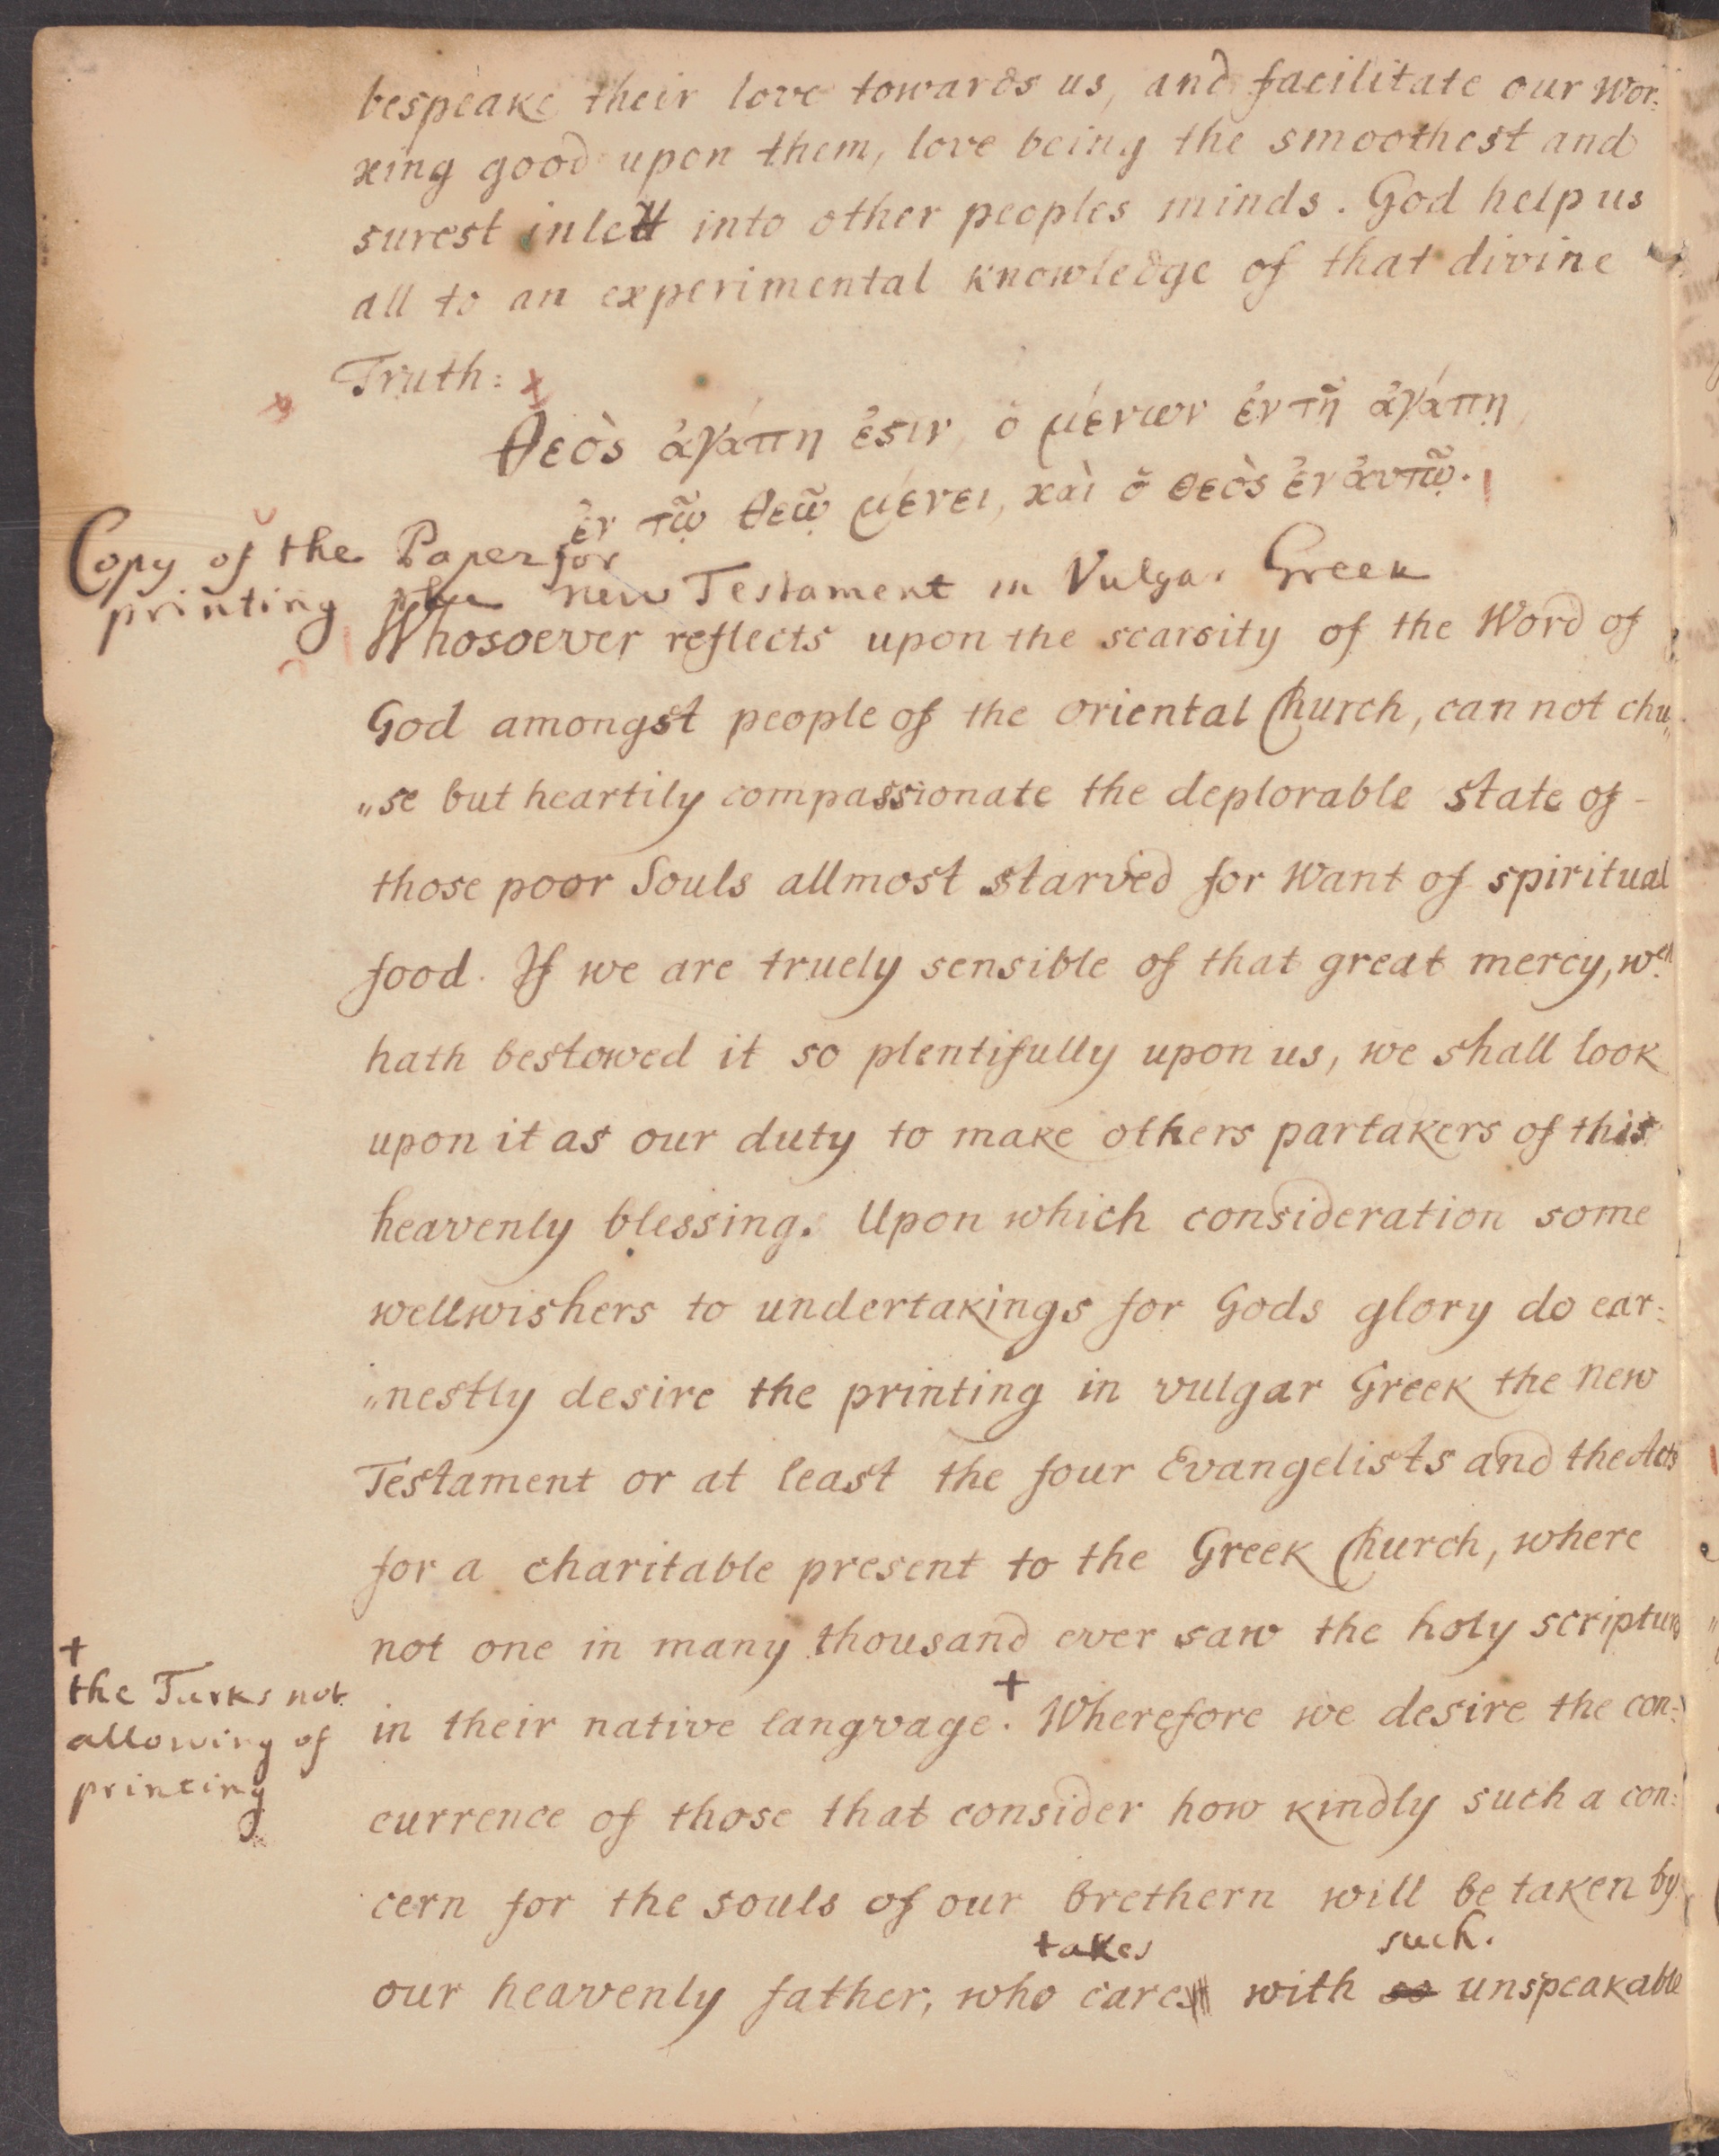 bespeake their love towards us, and facilitate our wor:
king good upon them, love being the smoothest and
surest inlett into other peoples minds. God help us
all to an experimental knowledge of that divine
Truth:
Θεὸς ἀγάπη ἐστιν, ὁ μένων ἐν τῇ ἀγάπῃ,
ἐν τῷ θεῷ μένει, καὶ ὁ θεὸς ἐν ἀυτῷ.
Copy of the Paper for
printing the new Testament in Vulgar Greek
Whosoever reflects upon the scarsity of the Word of
God amongst people of the oriental Church, can not chu„
„se but heartily compassionate the deplorable state of -
those poor Souls allmost starved for Want of spiritual
food. If we are truely sensible of that great mercy, wch
hath bestowed it so plentifully upon us, we shall look
upon it as our duty to make others partakers of this
heavenly blessing. Upon which consideration some
wellwishers to undertakings for Gods glory do ear:
„nestly desire the printing in vulgar Greek the new
Testament or at least the four Evangelists and the Acts
for a charitable present to the Greek Church, where
not one in many thousand ever saw the holy scriptures
in their native langvage. + Wherefore we desire the con:
+
the Turks not
allowing of
printing
currence of those that consider how kindly such a con:
cern for the souls of our brethern will be taken by
takes such.
our heavenly father, who cares with so unspeakable